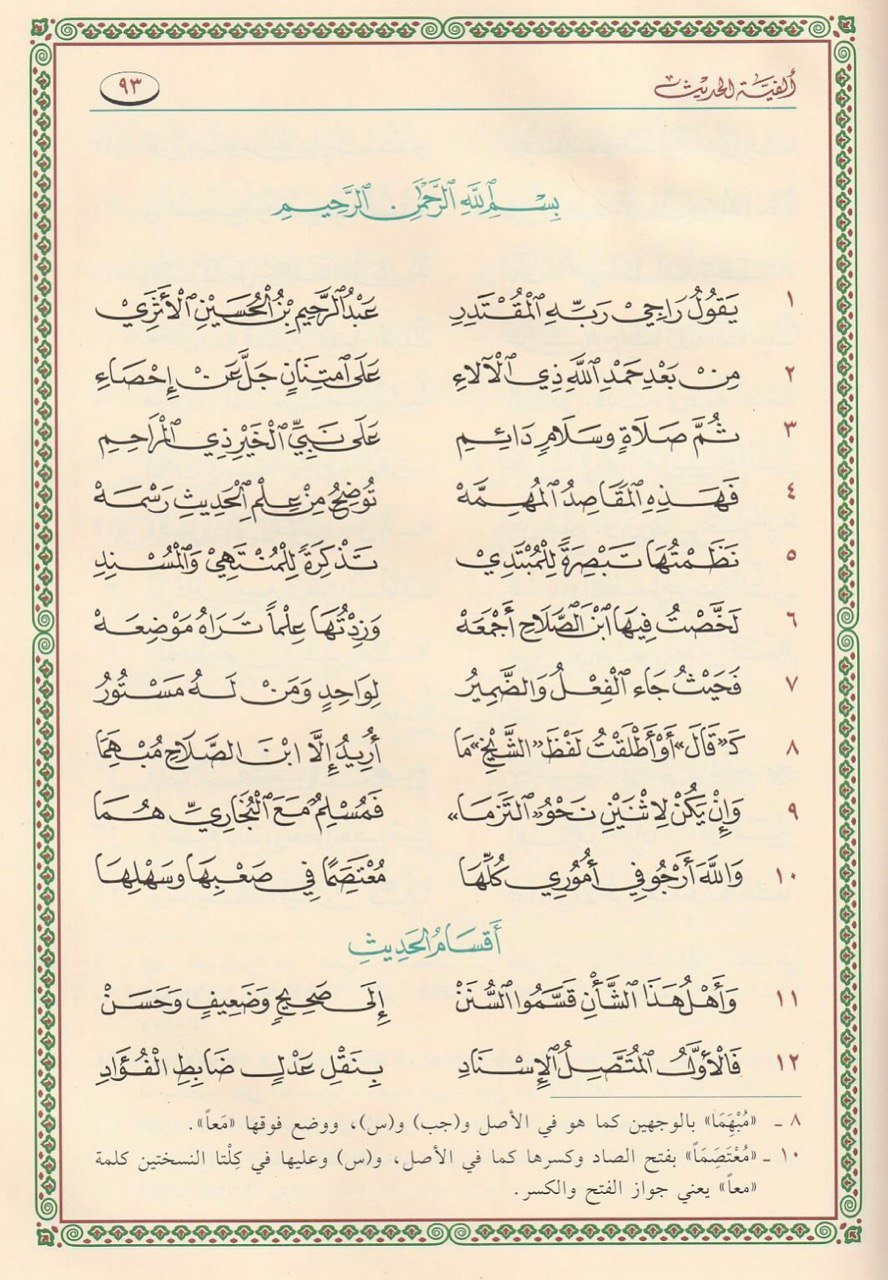 ألفيَّة الحديث
٩٣
بِسْمِ ٱللَّهِ ٱلرَّحْمَٰنِ ٱلرَّحِيمِ
١ يَقُولُ رَاجِي رَبِّهِ ٱلْمُقْتَدِرِ عَبْدُ ٱلرَّحِيمِ بْنُ ٱلْحُسَيْنِ ٱلْأَثَرِي
٢ مِنْ بَعْدِ حَمْدِ ٱللَّهِ ذِي ٱلْآلَاءِ عَلَى ٱمْتِنَانٍ جَلَّ عَنْ إِحْصَاءِ
٣ ثُمَّ صَلَاةٍ وَسَلَامٍ دَائِمِ عَلَى نَبِيِّ ٱلْخَيْرِ ذِي ٱلْمَرَاحِمِ
٤ فَهَذِهِ ٱلْمَقَاصِدُ ٱلْمُهِمَّهْ تُوضِحُ مِنْ عِلْمِ ٱلْحَدِيثِ رَسْمَهْ
٥ نَظَمْتُهَا تَبْصِرَةً لِلْمُبْتَدِي تَذْكِرَةً لِلْمُنْتَهِي وَٱلْمُسْنِدِ
٦ لَخَّصْتُ فِيهَا ٱبْنَ ٱلصَّلَاحِ أَجْمَعَهْ وَزِدْتُهَا عِلْماً تَرَاهُ مَوْضِعَهْ
٧ فَحَيْثُ جَاءَ ٱلْفِعْلُ وَالضَّمِيرُ لِوَاحِدٍ وَمَنْ لَهُ مَسْتُورُ
٨ كَـ«قَالَ» أَوْ أَطْلَقْتُ لَفْظَ «الشَّيْخِ» مَا أُرِيدُ إِلَّا ابْنَ الصَّلَاحِ مُبْهِمَا
٩ وَإِنْ يَكُنْ لِاثْنَيْنِ نَحْوُ «ٱلْتَزَمَا» فَمُسْلِمٌ مَعَ ٱلْبُخَارِيِّ هُمَا
١٠ وَاللَّهَ أَرْجُو فِي أُمُورِي كُلِّهَا مُعْتَصِمًا فِي صَعْبِهَا وَسَهْلِهَا
أَقْسَامُ الحَدِيثِ
١١ وَأَهْلُ هَذَا الشَّأْنِ قَسَّمُوا ٱلسُّنَنْ إِلَى صَحِيحٍ وَضَعِيفٍ وَحَسَنْ
١٢ فَالْأَوَّلُ ٱلْمُتَّصِلُ ٱلْإِسْنَادِ بِنَقْلِ عَدْلٍ ضَابِطِ الْفُؤَادِ
٨ ـ «مُبْهِمَا» بالوجهين كما هو في الأصل و(جب) و(س)، ووضع فوقها «مَعاً».
١٠ ـ «مُعْتَصِمَاً» بفتح الصاد وكسرها كما في الأصل، و(س) وعليها في كِلْتا النسختين كلمة
«معاً» يعني جواز الفتح والكسر.